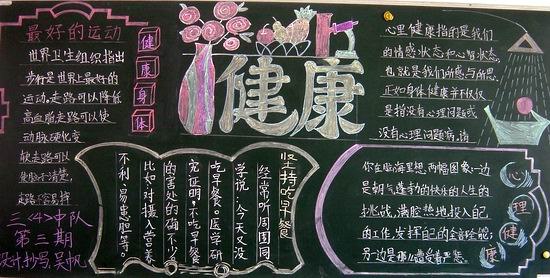 最好的运动
世界卫生组织指出
步行是世界上最好的
运动,走路可以降低
高血脂走路可以使
动脉硬化变
软走路可以
走路不容易
健
康
身
体
三〈4〉中队
第三期
设计,抄写,吴帆
健康
坚持吃早餐
经常听周围同
学说:今天又没
吃早餐。医学研
究证明,不吃早餐
的害处的确不少。
比如:对摄入营养
不利,易患胆等。
心里健康指的是我们
的情感状态和心智状态,
也就是我们所感与所思,
正如身体健康并不仅仅
是指没有心理问题或
没有心理问题病,请
你在脑海里想,两幅图象:一边
是朝气蓬勃的快乐的人生的
挑战,满腔热地投入自己
的工作,发挥自己的全部能
另边是
心
理
健
康